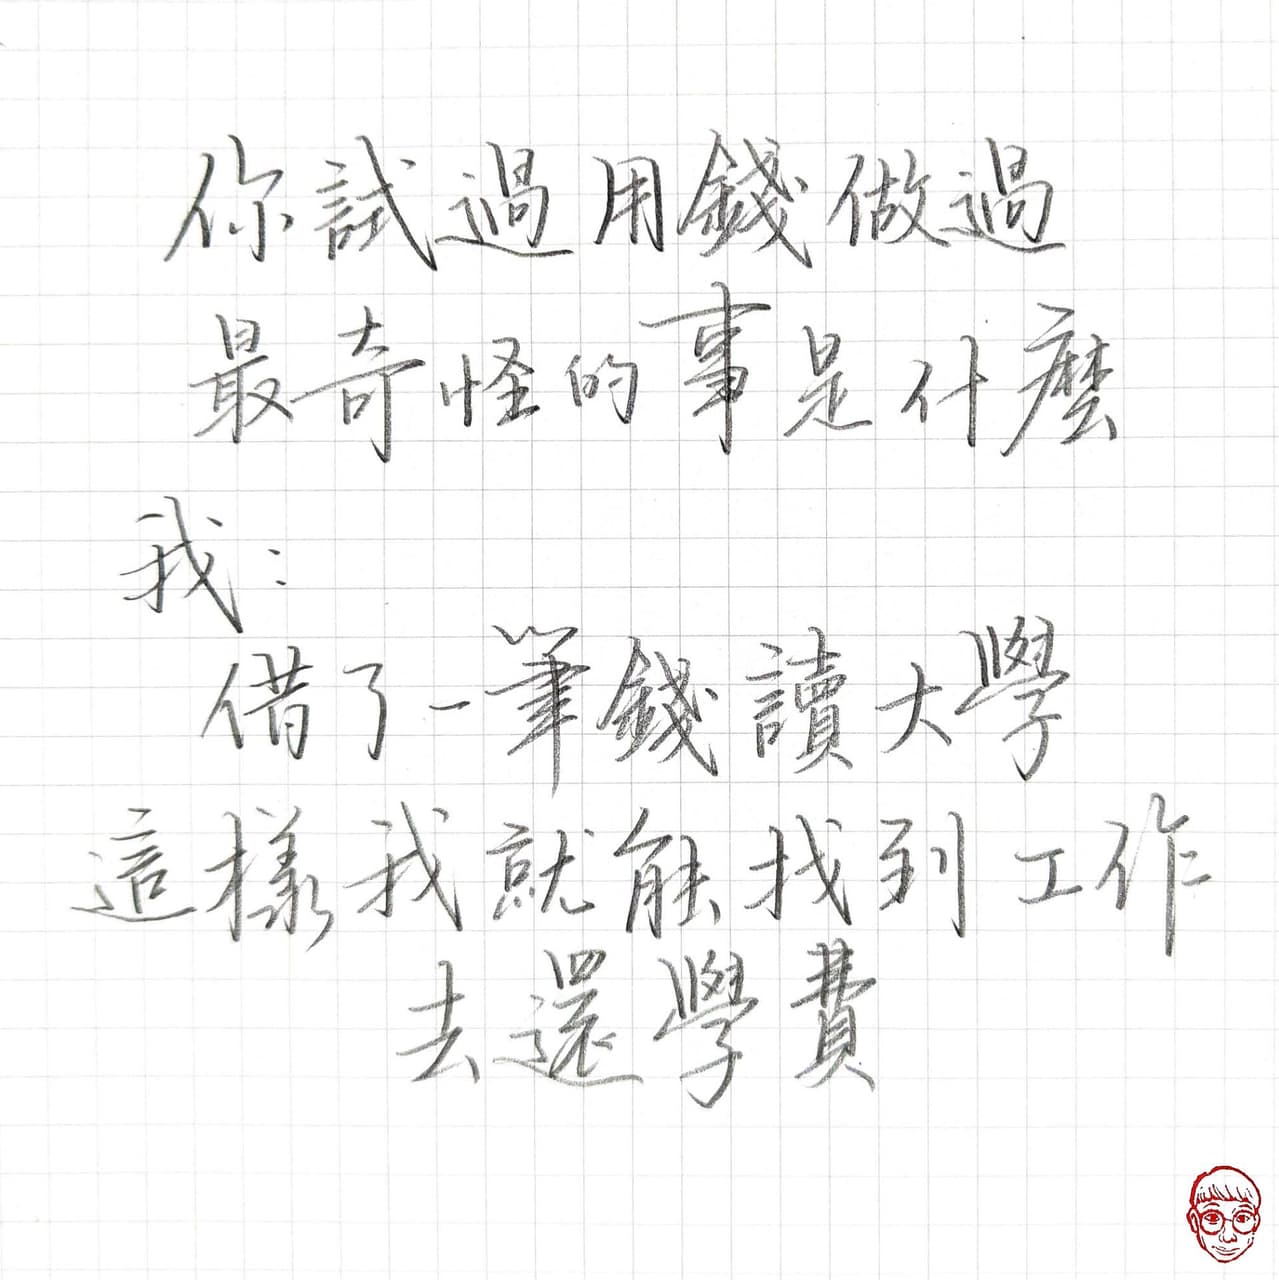 你試過用錢做過
最奇怪的事是什麼
我：
借了一筆錢讀大學
這樣我就能找到工作
去還學費